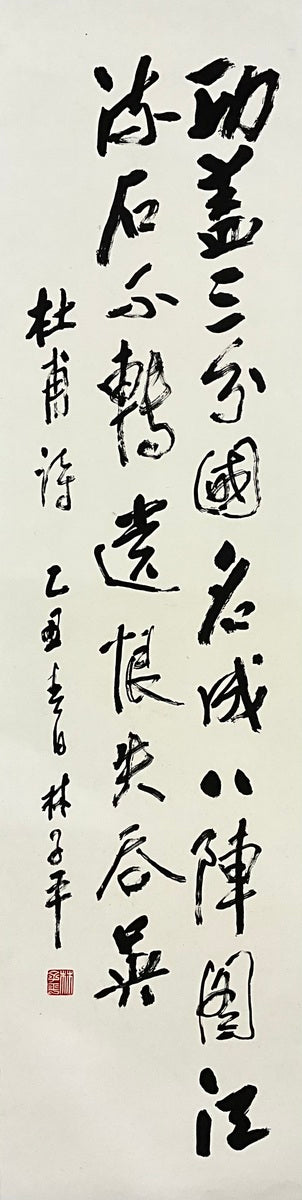 功盖三分國名成八陣圖江
流石不轉遺恨失吞吳
杜甫詩 乙丑春日 林子平